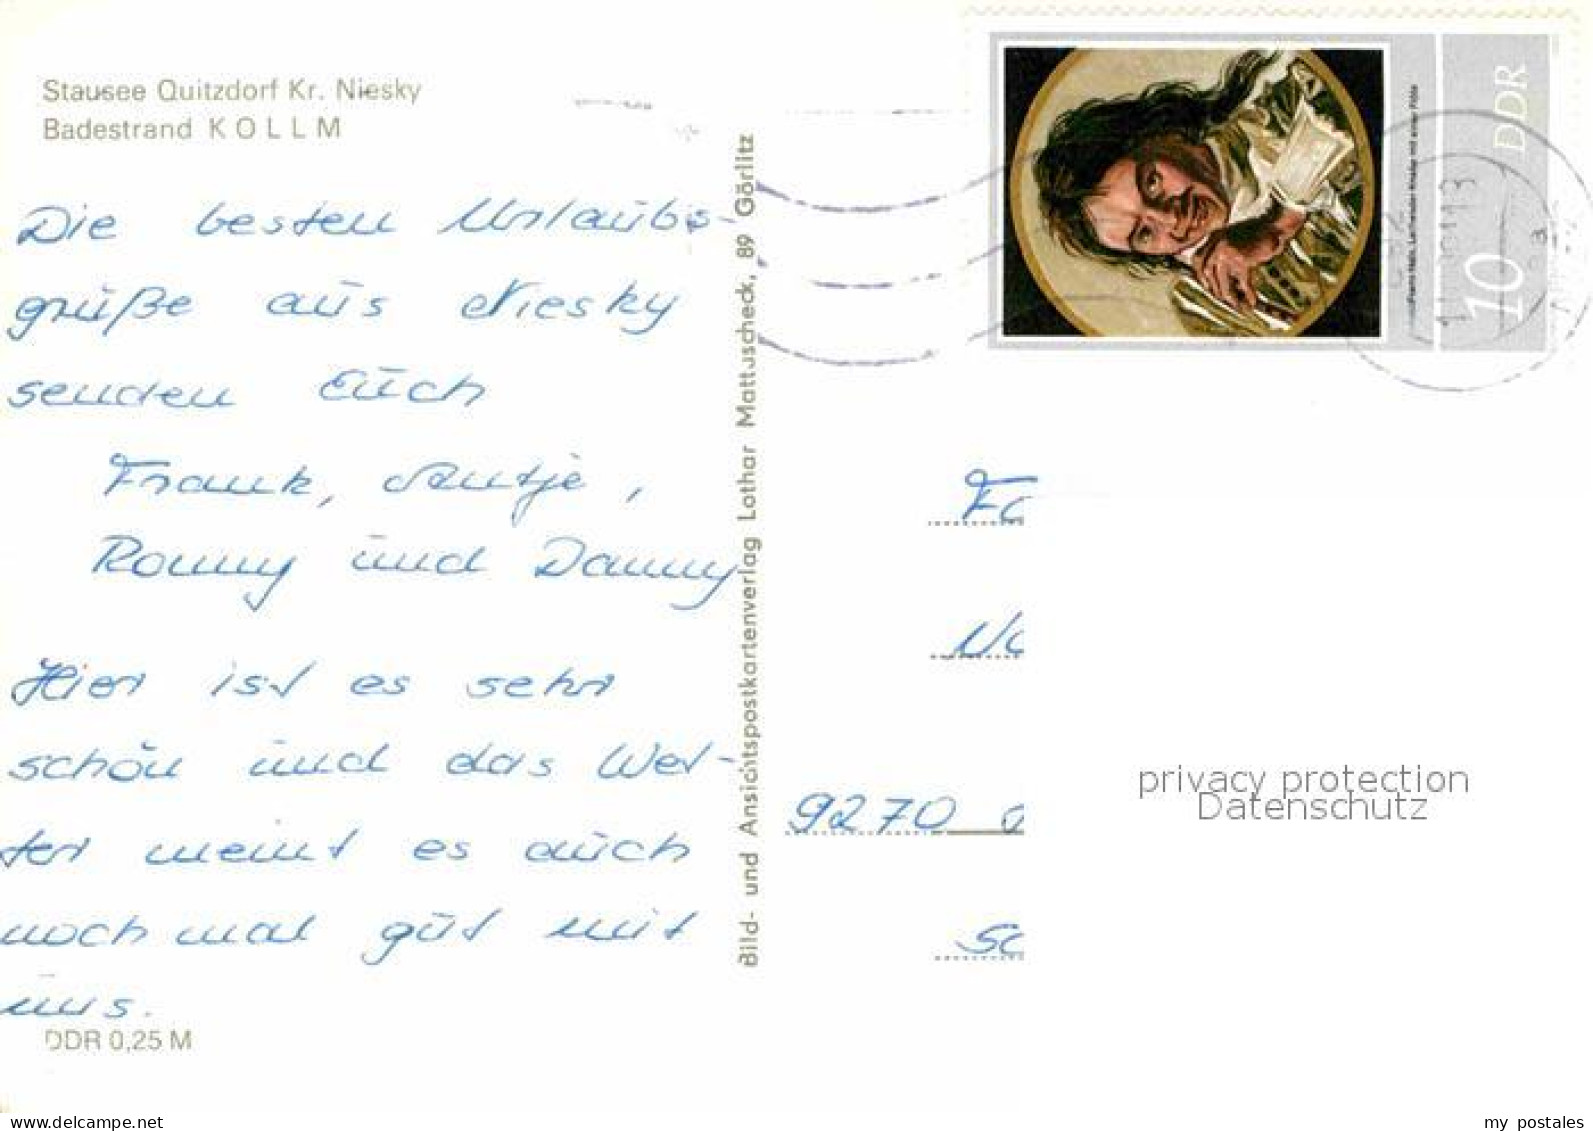 Stausee Quitzdorf Kr. Niesky
Badestrand KOLLM
Die besten Urlaubs-
grüße aus Niesky
senden Euch
Frank, Antje,
Ronny und Danny
Hier ist es sehr
schön und das Wet-
ter meint es auch
noch mal gut mit
uns.
DDR 0,25 M
Bild- und Ansichtspostkartenverlag Lothar Mattuscheck, 89 Görlitz
DDR
10
Fa
No
9270
Sc
privacy protection
Datenschutz
delcampe.net
my postales